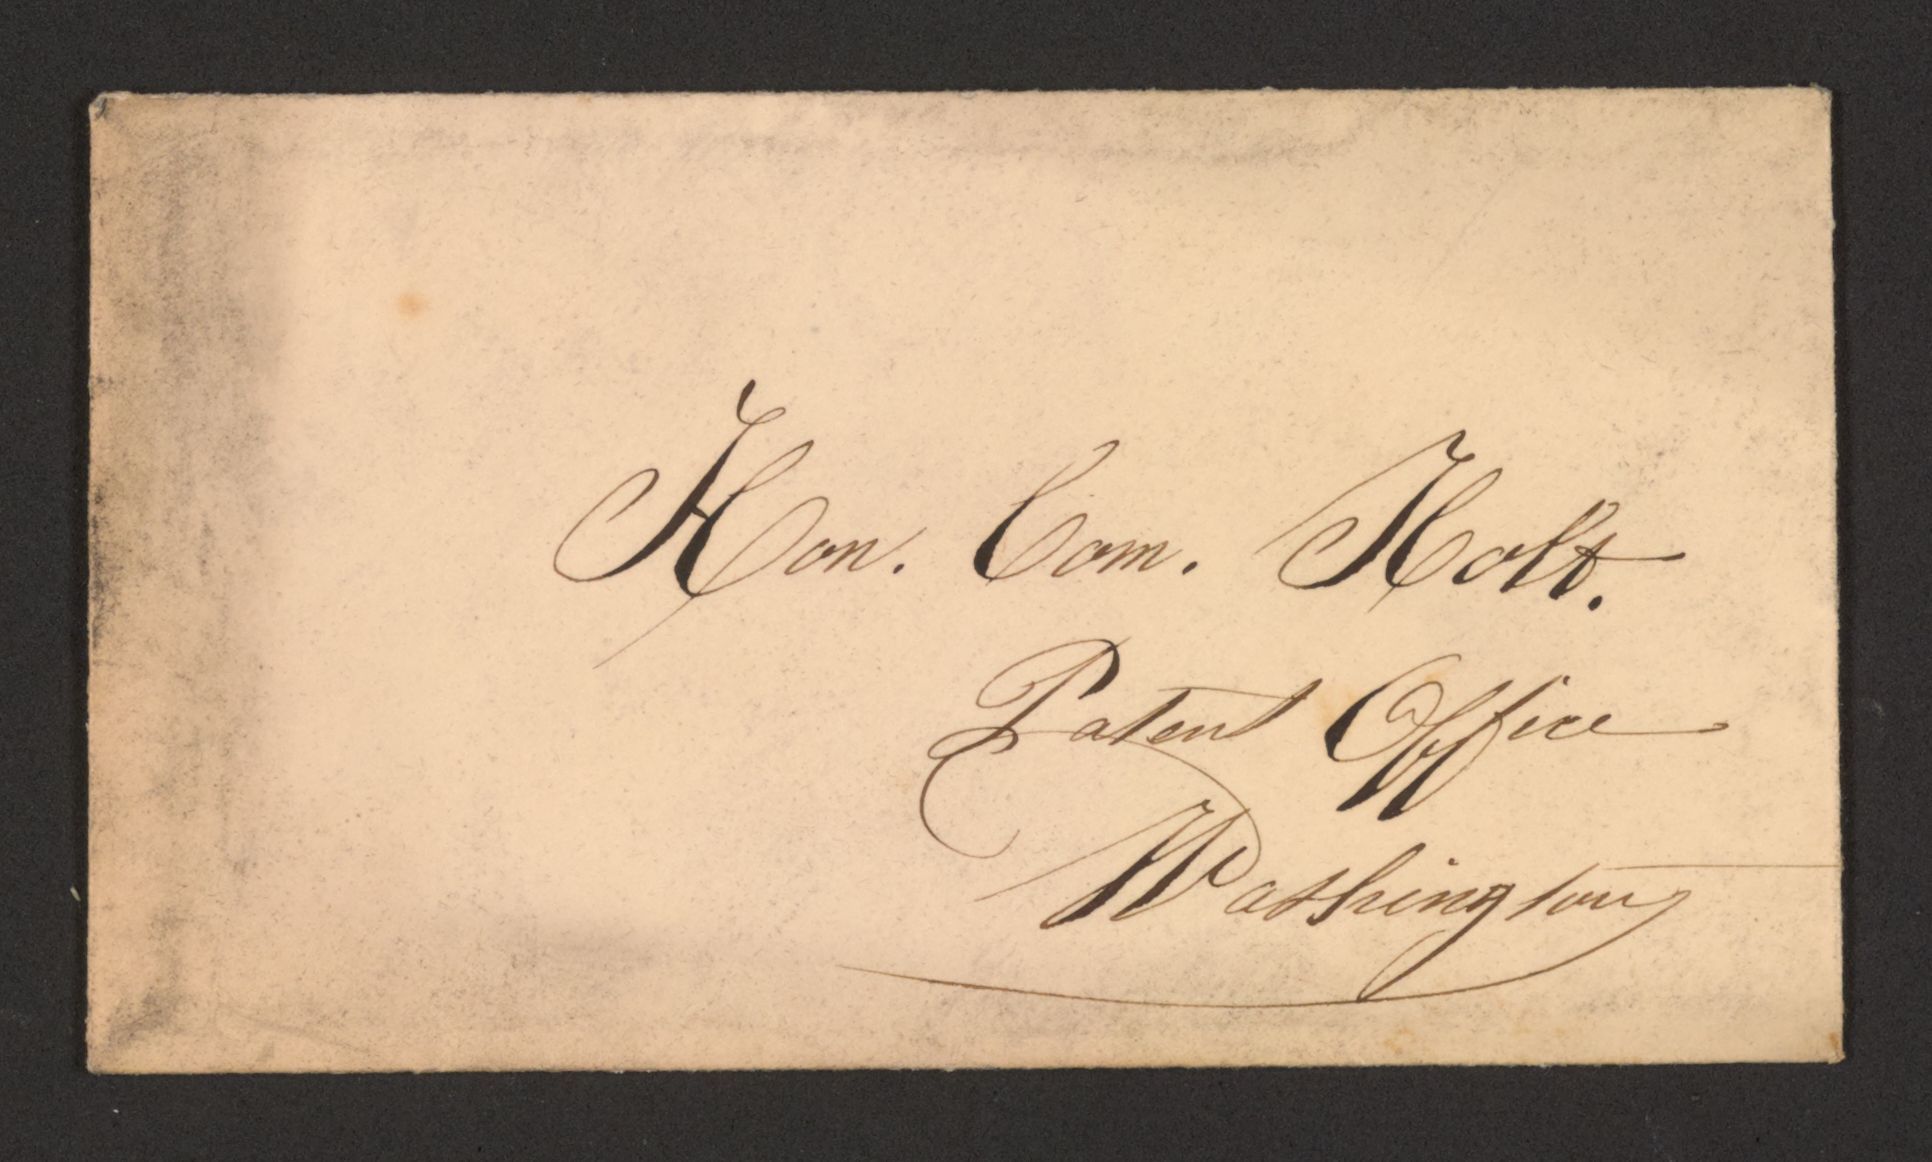 Hon. Com. Holt.
Patent Office
Washington